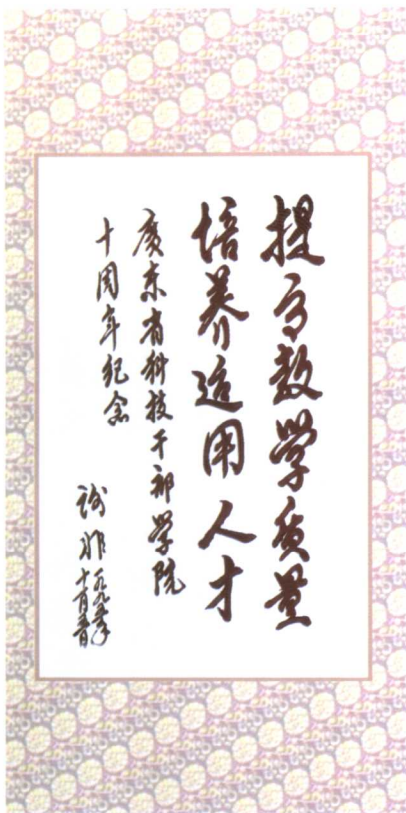 提高教學质量
培养适用人才
廣东省科技干部學院
十周年纪念
谢非
一九九五年
十一月